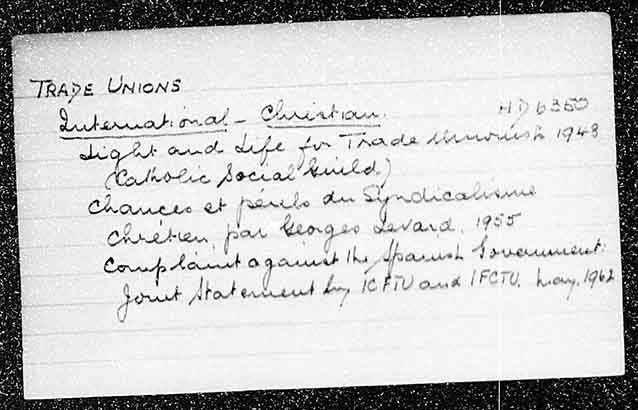 TRADE UNIONS
International - Christian. HD6350
Light and Life for Trade Unionists 1948
(Catholic Social Guild)
Chances et périls du Syndicalisme
Chrétien, par Georges Levard, 1955
Complaint against the Spanish Government:
Joint Statement by ICFTU and IFCTU. May, 1962